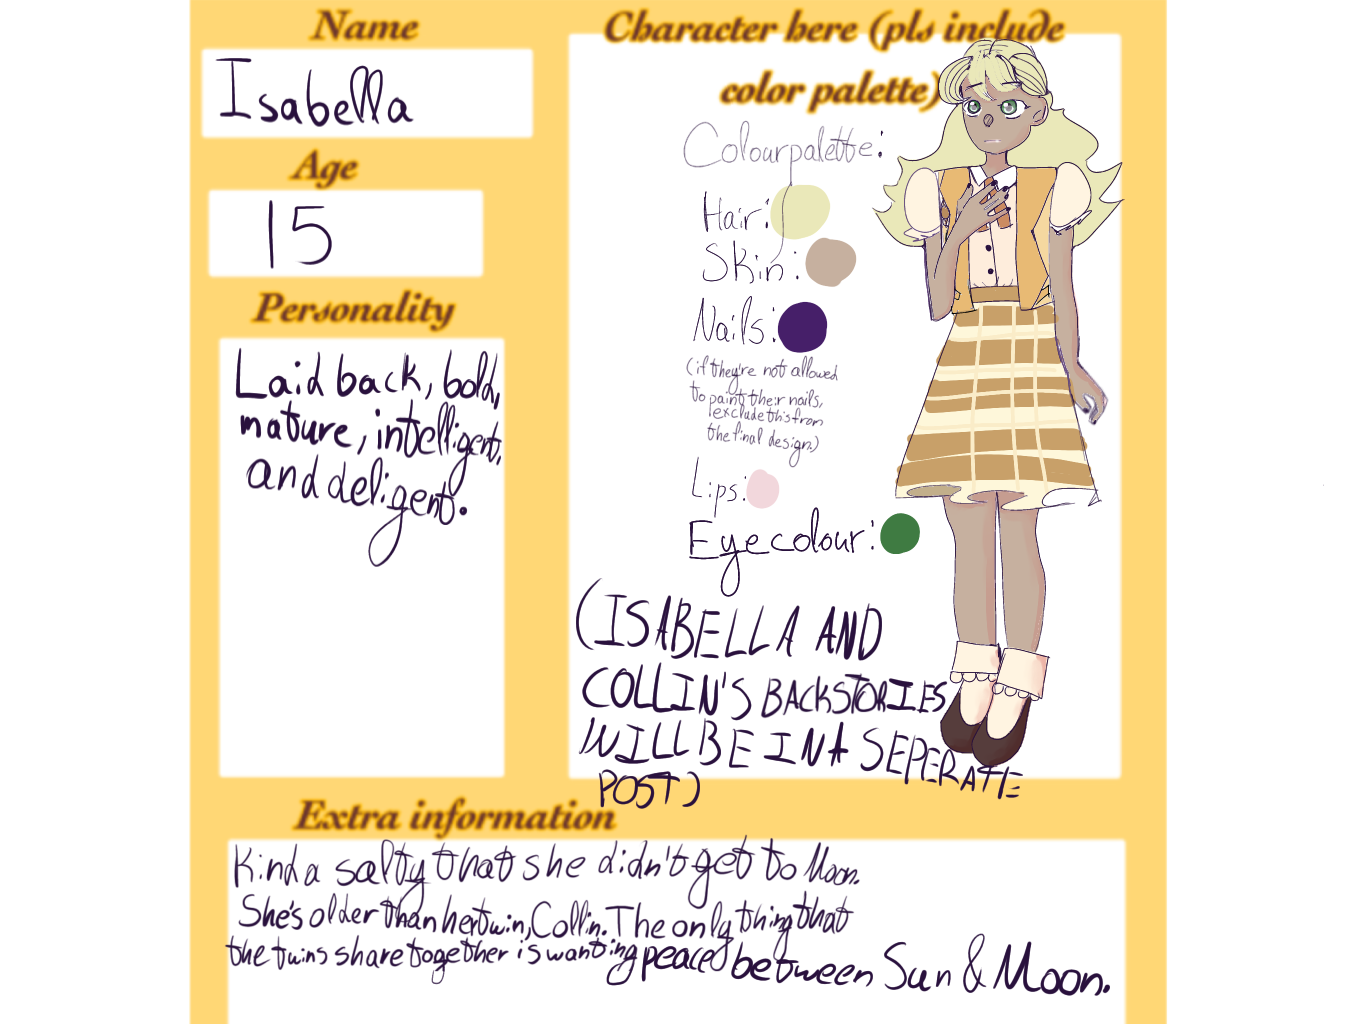 Name
Isabella
Age
15
Personality
Laid back, bold,
mature, intelligent,
and deligent.
Character here (pls include
color palette)
Colourpalette:
Hair:
Skin:
Nails:
(if they're not allowed
to paint their nails,
exclude this from
the final design.)
Lips:
Eye colour:
(ISABELLA AND
COLLIN'S BACKSTORIES
WILL BE IN A SEPERATE
POST)
Extra information
Kinda salty that she didn't get to Moon.
She's older than her twin, Collin. The only thing that
the twins share together is wanting peace between Sun & Moon.